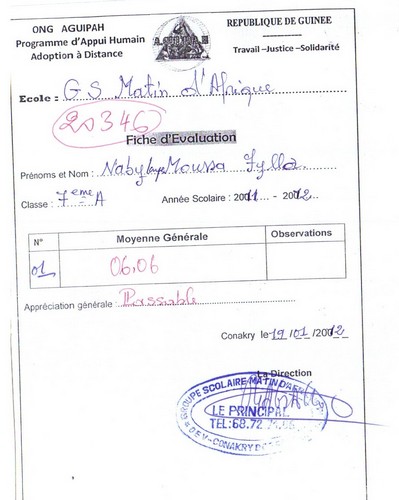 ONG AGUIPAH
Programme d'Appui Humain
Adoption à Distance
REPUBLIQUE DE GUINEE
Travail –Justice –Solidarité
Ecole : G S Matin d'Afrique
20346
Fiche d'Evaluation
Prénoms et Nom : Nabylaye Moussa Sylla
Classe : 7ème A
Année Scolaire : 2011 - 2012
N°
Moyenne Générale
Observations
01
06,06
Appréciation générale : Passable
Conakry le 19/01/2012
La Direction
GROUPE SCOLAIRE MATIN D'AF
LE PRINCIPAL
TEL: 68.72
DEV-CONAKRY